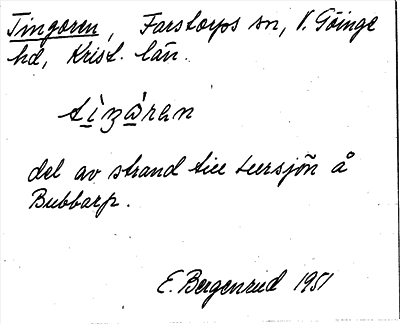 Tingoren, Farstorps sn, V. Göinge
hd, Krist. län.
del av strand till Luersjön å
Bubbarp.
E. Bergenrud 1951